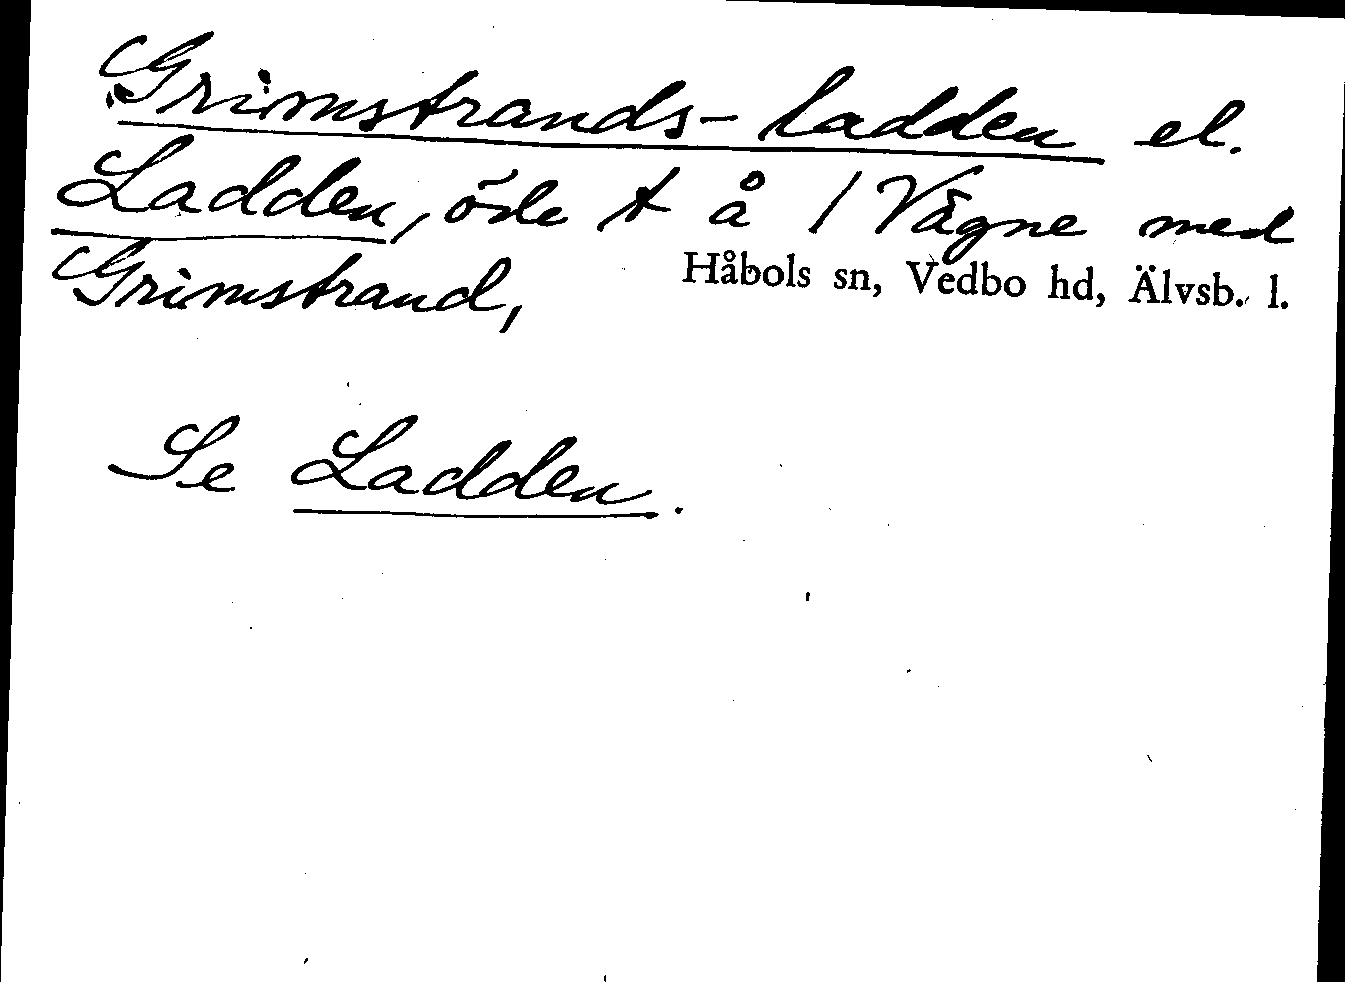 Grimstrands-ladden el.
Ladden, öde t å 1 Vägne med
Grimstrand,
Håbols sn, Vedbo hd, Älvsb. l.
Se Ladden.